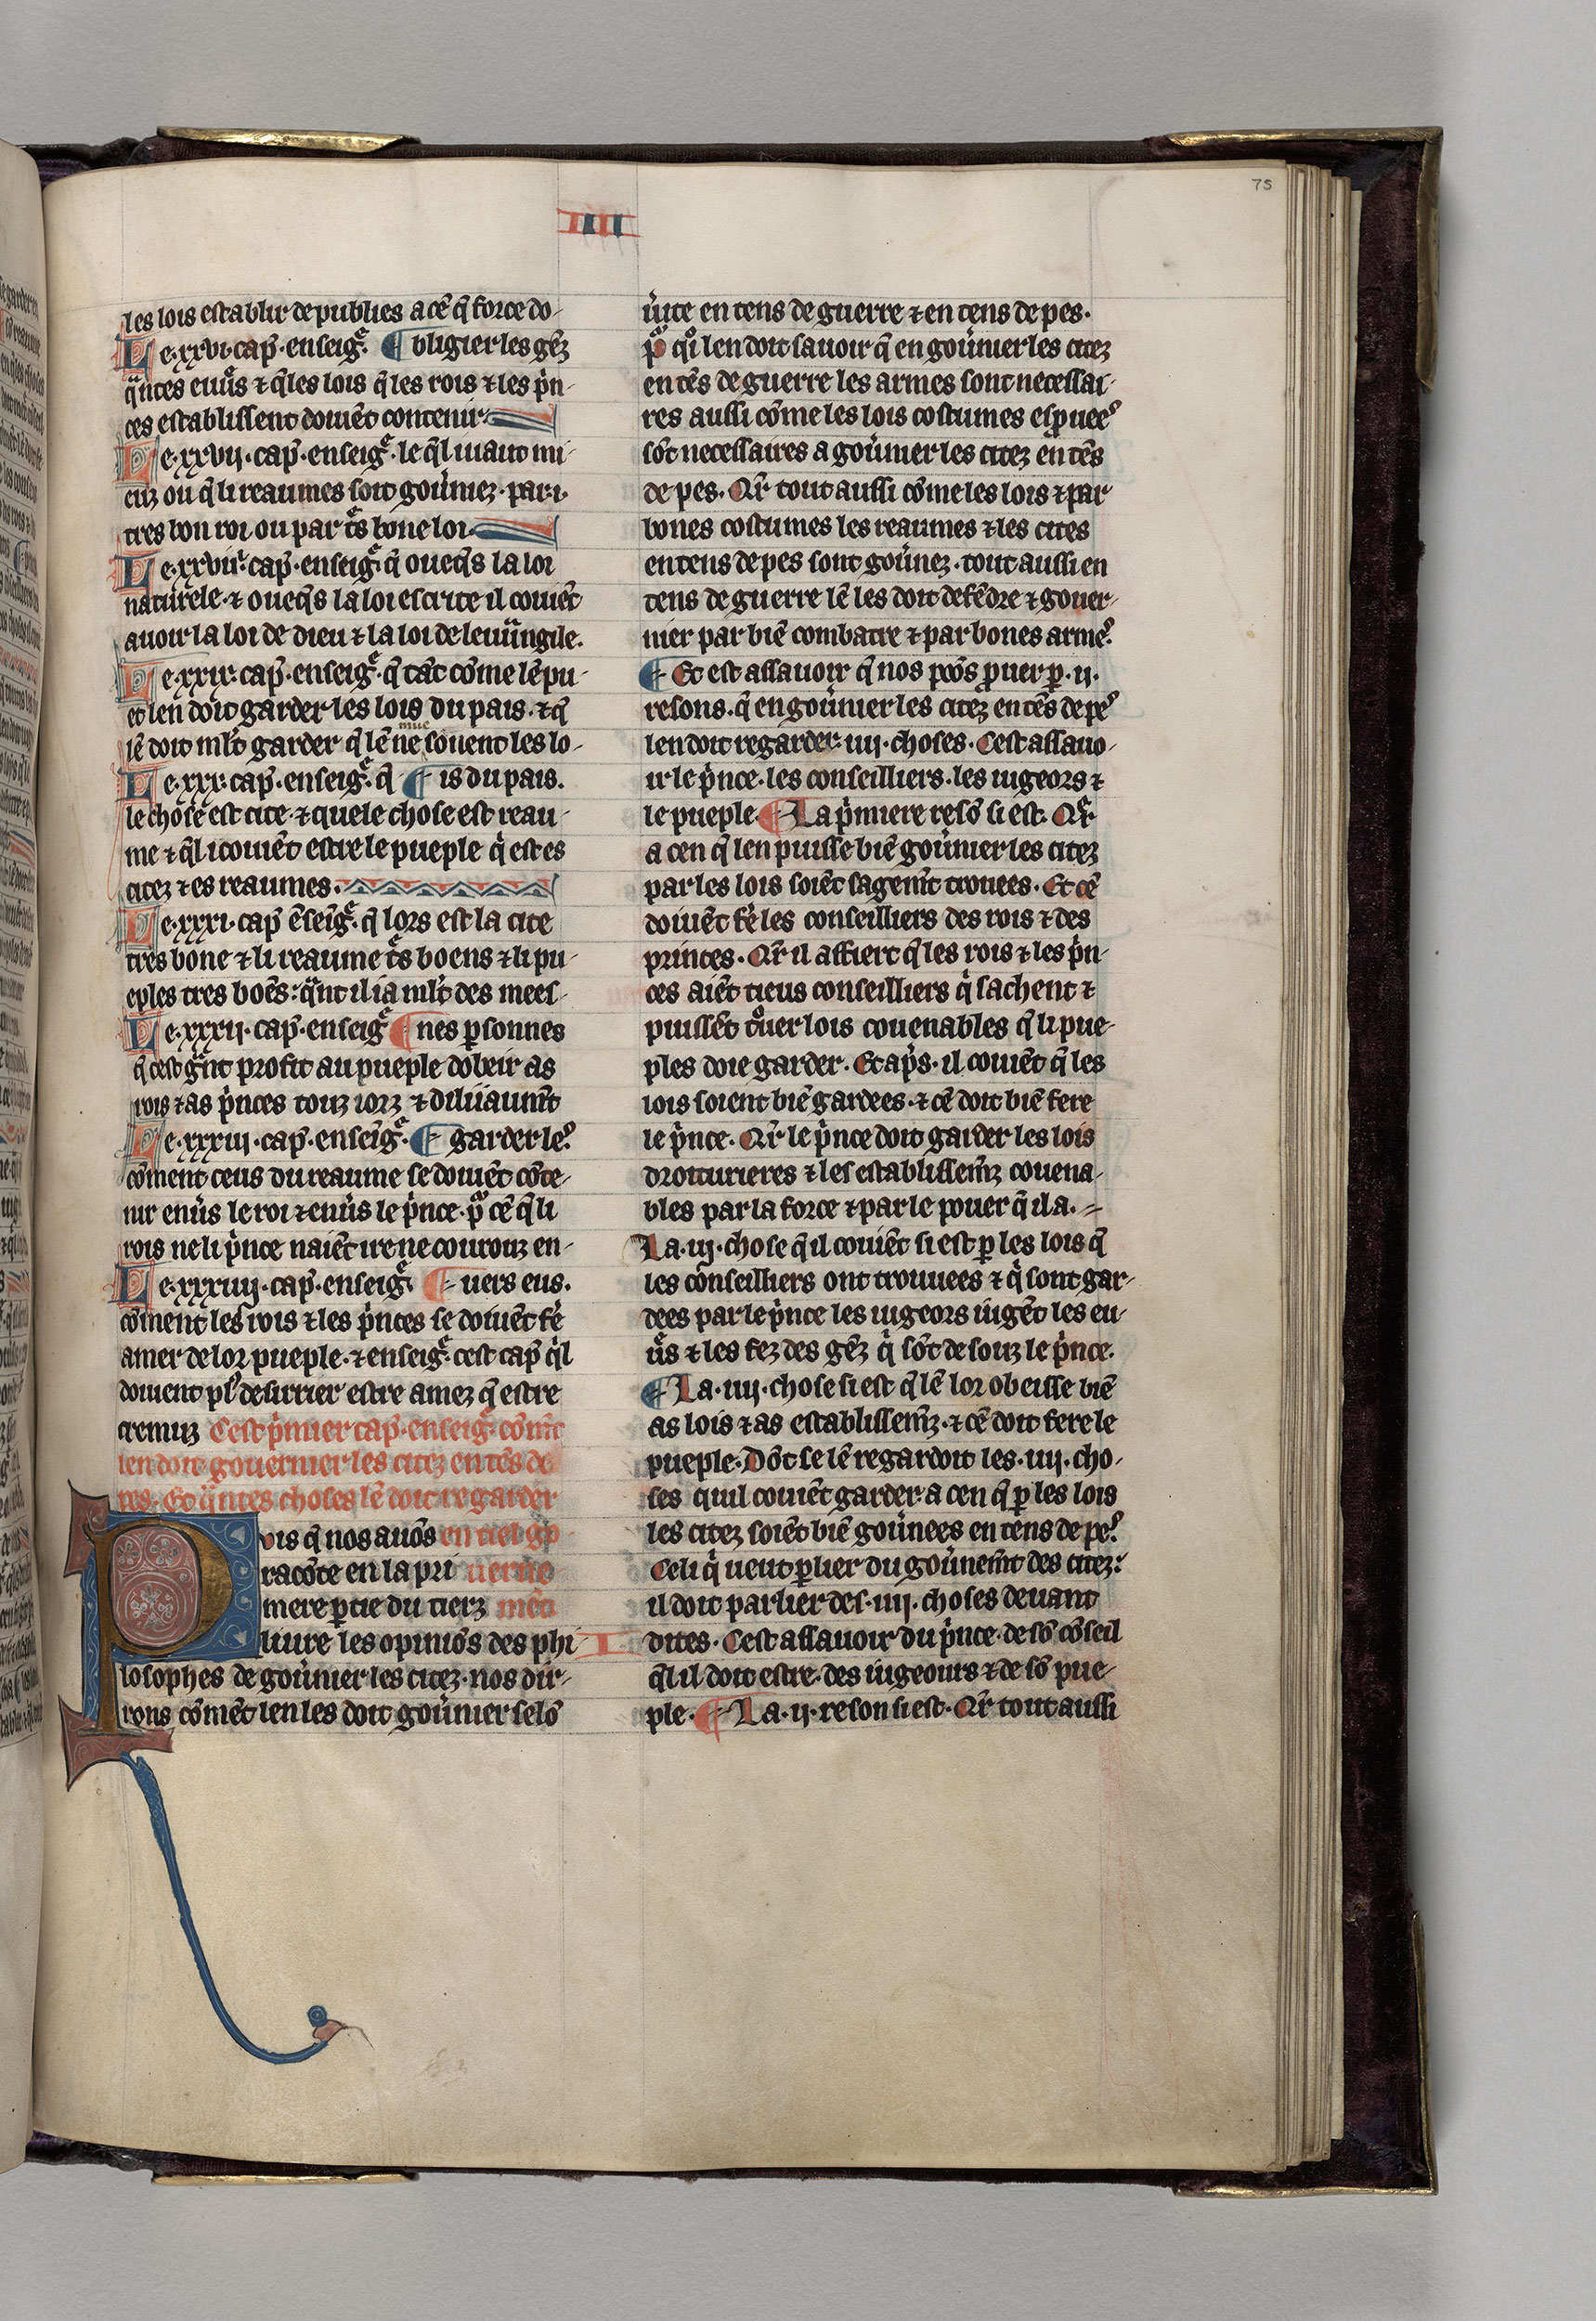 75
IIII
les lois establir de publies a cē q̄ force do-
Le .xxvi. cap̄. enseigͤ. ¶ bligier les gēz
qͣntes euu̾s ⁊ q̄les lois q̄ les rois ⁊ les pͥn-
ces establissent doiuēt contenir
Le .xxvij. cap̄. enseigͤ. le q̄l uiaut mi-
euz ou q̄ li reaumes soit gou̾niez. par .i.
tres bon roi ou par tͤs bone loi
Le .xxviiͥ. cap̄. enseigͤ. q̄ oueq̄s la loi
naturele. ⁊ oueq̄s la loi escrite il couiēt
auoir la loi de dieu ⁊ la loi de leuuͣngile.
Le .xxix. cap̄. enseigͤ. q̄ tāt cōme lē pu-
et len doit garder les lois du pais. ⁊ q̄
mue
lē doit ml̄t garder q̄ lē ne souent les lo-
Le .xxx. cap̄. enseigͤ. q̄ ¶ is du pais.
le chose est cite. ⁊ quele chose est reau-
me ⁊ q̄l i couiēt estre le pueple qͥ est es
citez ⁊ es reaumes.
Le .xxxi. cap̄ ēseigͤ. q̄ lors est la cite
tres bone ⁊ li reaume tͤs boens ⁊ li pu-
eples tres boēs: qͣnt il i a ml̄t des meeſ-
Le .xxxij. cap̄. enseigͤ ¶ nes ꝑsonnes
q̄ cest gͣnt profit au pueple dobeir as
rois ⁊ as pͥnces touz iorz ⁊ diliiaum̄t
Le .xxxiij. cap̄. enseigͤ. ¶ garder leꝰ.
cōment ceus du reaume se doiuēt cōte-
nir enu̾s le roi ⁊ enu̾s le pͥnce. pͦ cē q̄ li
rois ne li pͥnce naiēt ire ne courouz en-
Le .xxxiiij. cap̄. enseigͤ. ¶ uers eus.
cōment les rois ⁊ les pͥnces se doiuēt fe̾
amer de lor pueple. ⁊ enseigͤ. cest cap̄ qͥl
doiuent plꝰ desirrier estre amez q̄ estre
cremuz Cest pͥmier cap̄. enseigͤ. cōm̄t
len doit gouernier les citez en tēs de
pes. Et qͣntes choses lē doit regarder
Puis q̄ nos auōs en tiel gō-
racōte en la pri uerne
mere ꝑtie du tierz mēt
liure les opiniōs des phi I
losophes de gou̾nier les citez. nos dir-
rons cōmēt len les doit gou̾nier selō
u̾ite en tens de guerre ⁊ en tens de pes.
pͦ qͦi len doit sauoir q̄ en gou̾nier les citez
en tēs de guerre les armes sont necessai-
res aussi cōme les lois costumes esꝓueeꝰ
sōt necessaires a gou̾nier les citez en tēs
de pes. Qͣr tout aussi cōme les lois ⁊ par
bones costumes les reaumes ⁊ les cites
en tens de pes sont gou̾nez. tout aussi en
tens de guerre lē les doit defēdre ⁊ gouer-
nier par biē combatre ⁊ par bones armeꝰ.
¶ Et est assauoir q̄ nos poōs ꝓuer ꝑ .ij.
resons. q̄ en gou̾nier les citez en tēs de peꝰ
len doit regarder .iiij. choses. Cest assauo-
ir le pͥnce. les conseilliers. les iugeors ⁊
le pueple. ¶ La pͥmiere resō si est. Qͣr
a cen q̄ len puisse biē gou̾nier les citez
par les lois soiēt sagem̄t trouees. Et cē
doiuēt fe̾ les conseilliers des rois ⁊ des
princes. Qͣr il affiert q̄ les rois ⁊ les pͥn-
ces aiēt tieus conseilliers qͥ sachent ⁊
puissēt tͦuer lois couenables q̄ li pue-
ples doie garder. Et ap̾s. il couiēt q̄ les
lois soient biē gardees. ⁊ cē doit biē fere
le pͥnce. Qͣr le pͥnce doit garder les lois
droiturieres ⁊ les establissem̄z couena-
bles par la force ⁊ par le pouer q̄ il a.
La .iij. chose q̄ il couiēt si est ꝑ les lois q̄
les cōnseilliers ont trouuees ⁊ qͥ sont gar-
dees par le pͥnce les iugeors iugēt les eu-
u̾s ⁊ les fez des gēz qͥ sōt desouz le pͥnce.
¶ La .iiij. chose si est q̄ lē lor obeisse biē
as lois ⁊ as establissem̄z. ⁊ cē doit fere le
pueple. Dōt se lē regardoit les .iiij. cho-
ses quil couiēt garder. a cen q̄ ꝑ les lois
les citez soiēt biē gou̾nees en tens de peꝰ.
Celi qͥ ueut ꝑlier du gou̾nem̄t des citez:
il doit parlier des .iiij. choses deuant
dites. Cest assauoir du pͥnce. de sō cōseil
q̄l il doit estre. des iugeours ⁊ de sō pue-
ple. ¶ La .ij. reson si est. Qͣr tout aussi